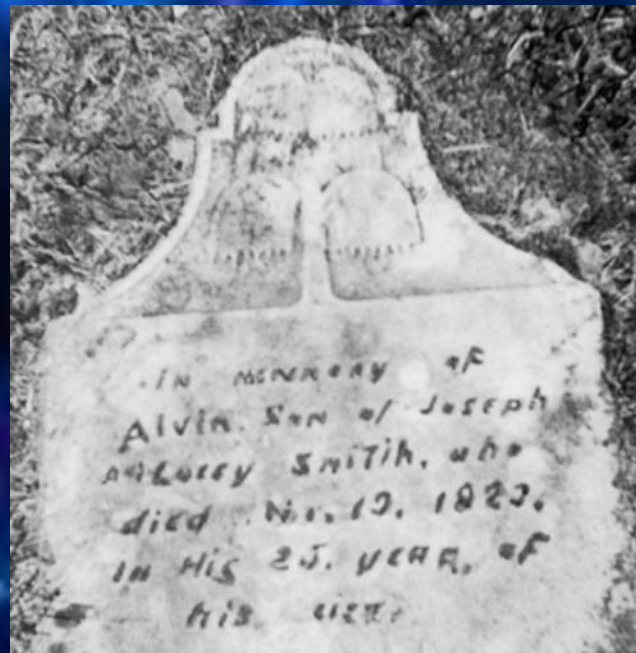 In memory of
Alvin. Son of Joseph
& Lucey Smitih. who
died Nov. 19. 1823.
In His 25. year, of
his life.